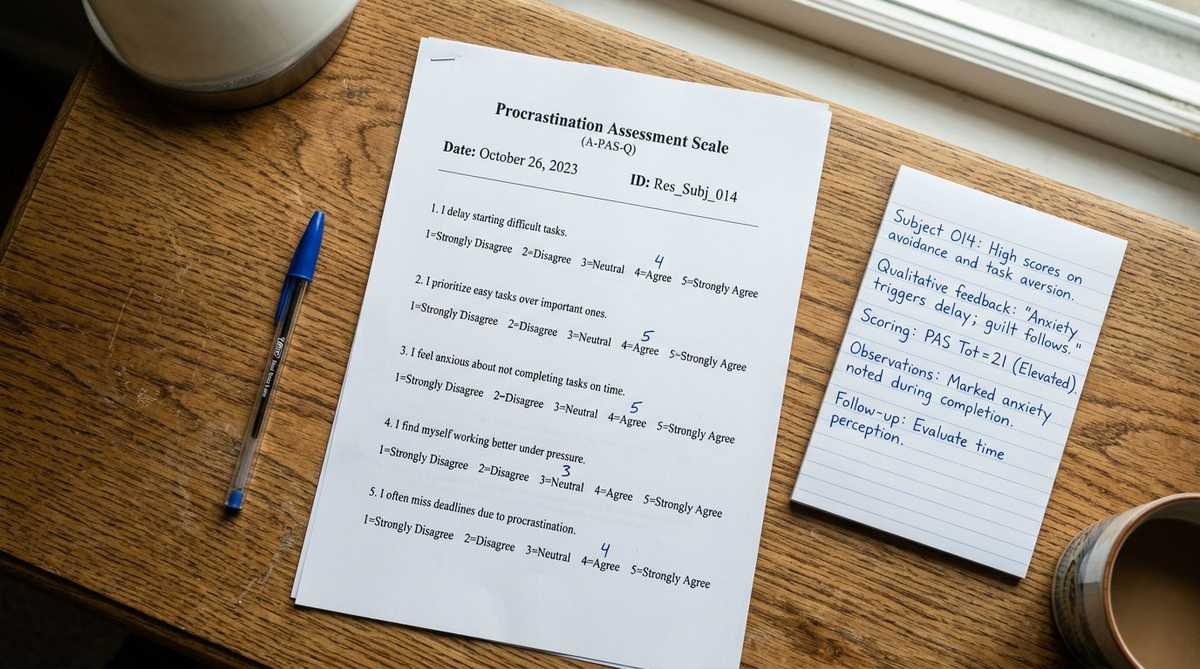 Procrastination Assessment Scale
(A-PAS-Q)
Date: October 26, 2023 ID: Res_Subj_014
1. I delay starting difficult tasks.
4
1=Strongly Disagree 2=Disagree 3=Neutral 4=Agree 5=Strongly Agree
2. I prioritize easy tasks over important ones.
5
1=Strongly Disagree 2=Disagree 3=Neutral 4=Agree 5=Strongly Agree
3. I feel anxious about not completing tasks on time.
5
1=Strongly Disagree 2=Disagree 3=Neutral 4=Agree 5=Strongly Agree
4. I find myself working better under pressure.
3
1=Strongly Disagree 2=Disagree 3=Neutral 4=Agree 5=Strongly Agree
5. I often miss deadlines due to procrastination.
4
1=Strongly Disagree 2=Disagree 3=Neutral 4=Agree 5=Strongly Agree
Subject 014: High scores on
avoidance and task aversion.
Qualitative feedback: "Anxiety
triggers delay; guilt follows."
Scoring: PAS Tot=21 (Elevated).
Observations: Marked anxiety
noted during completion.
Follow-up: Evaluate time
perception.